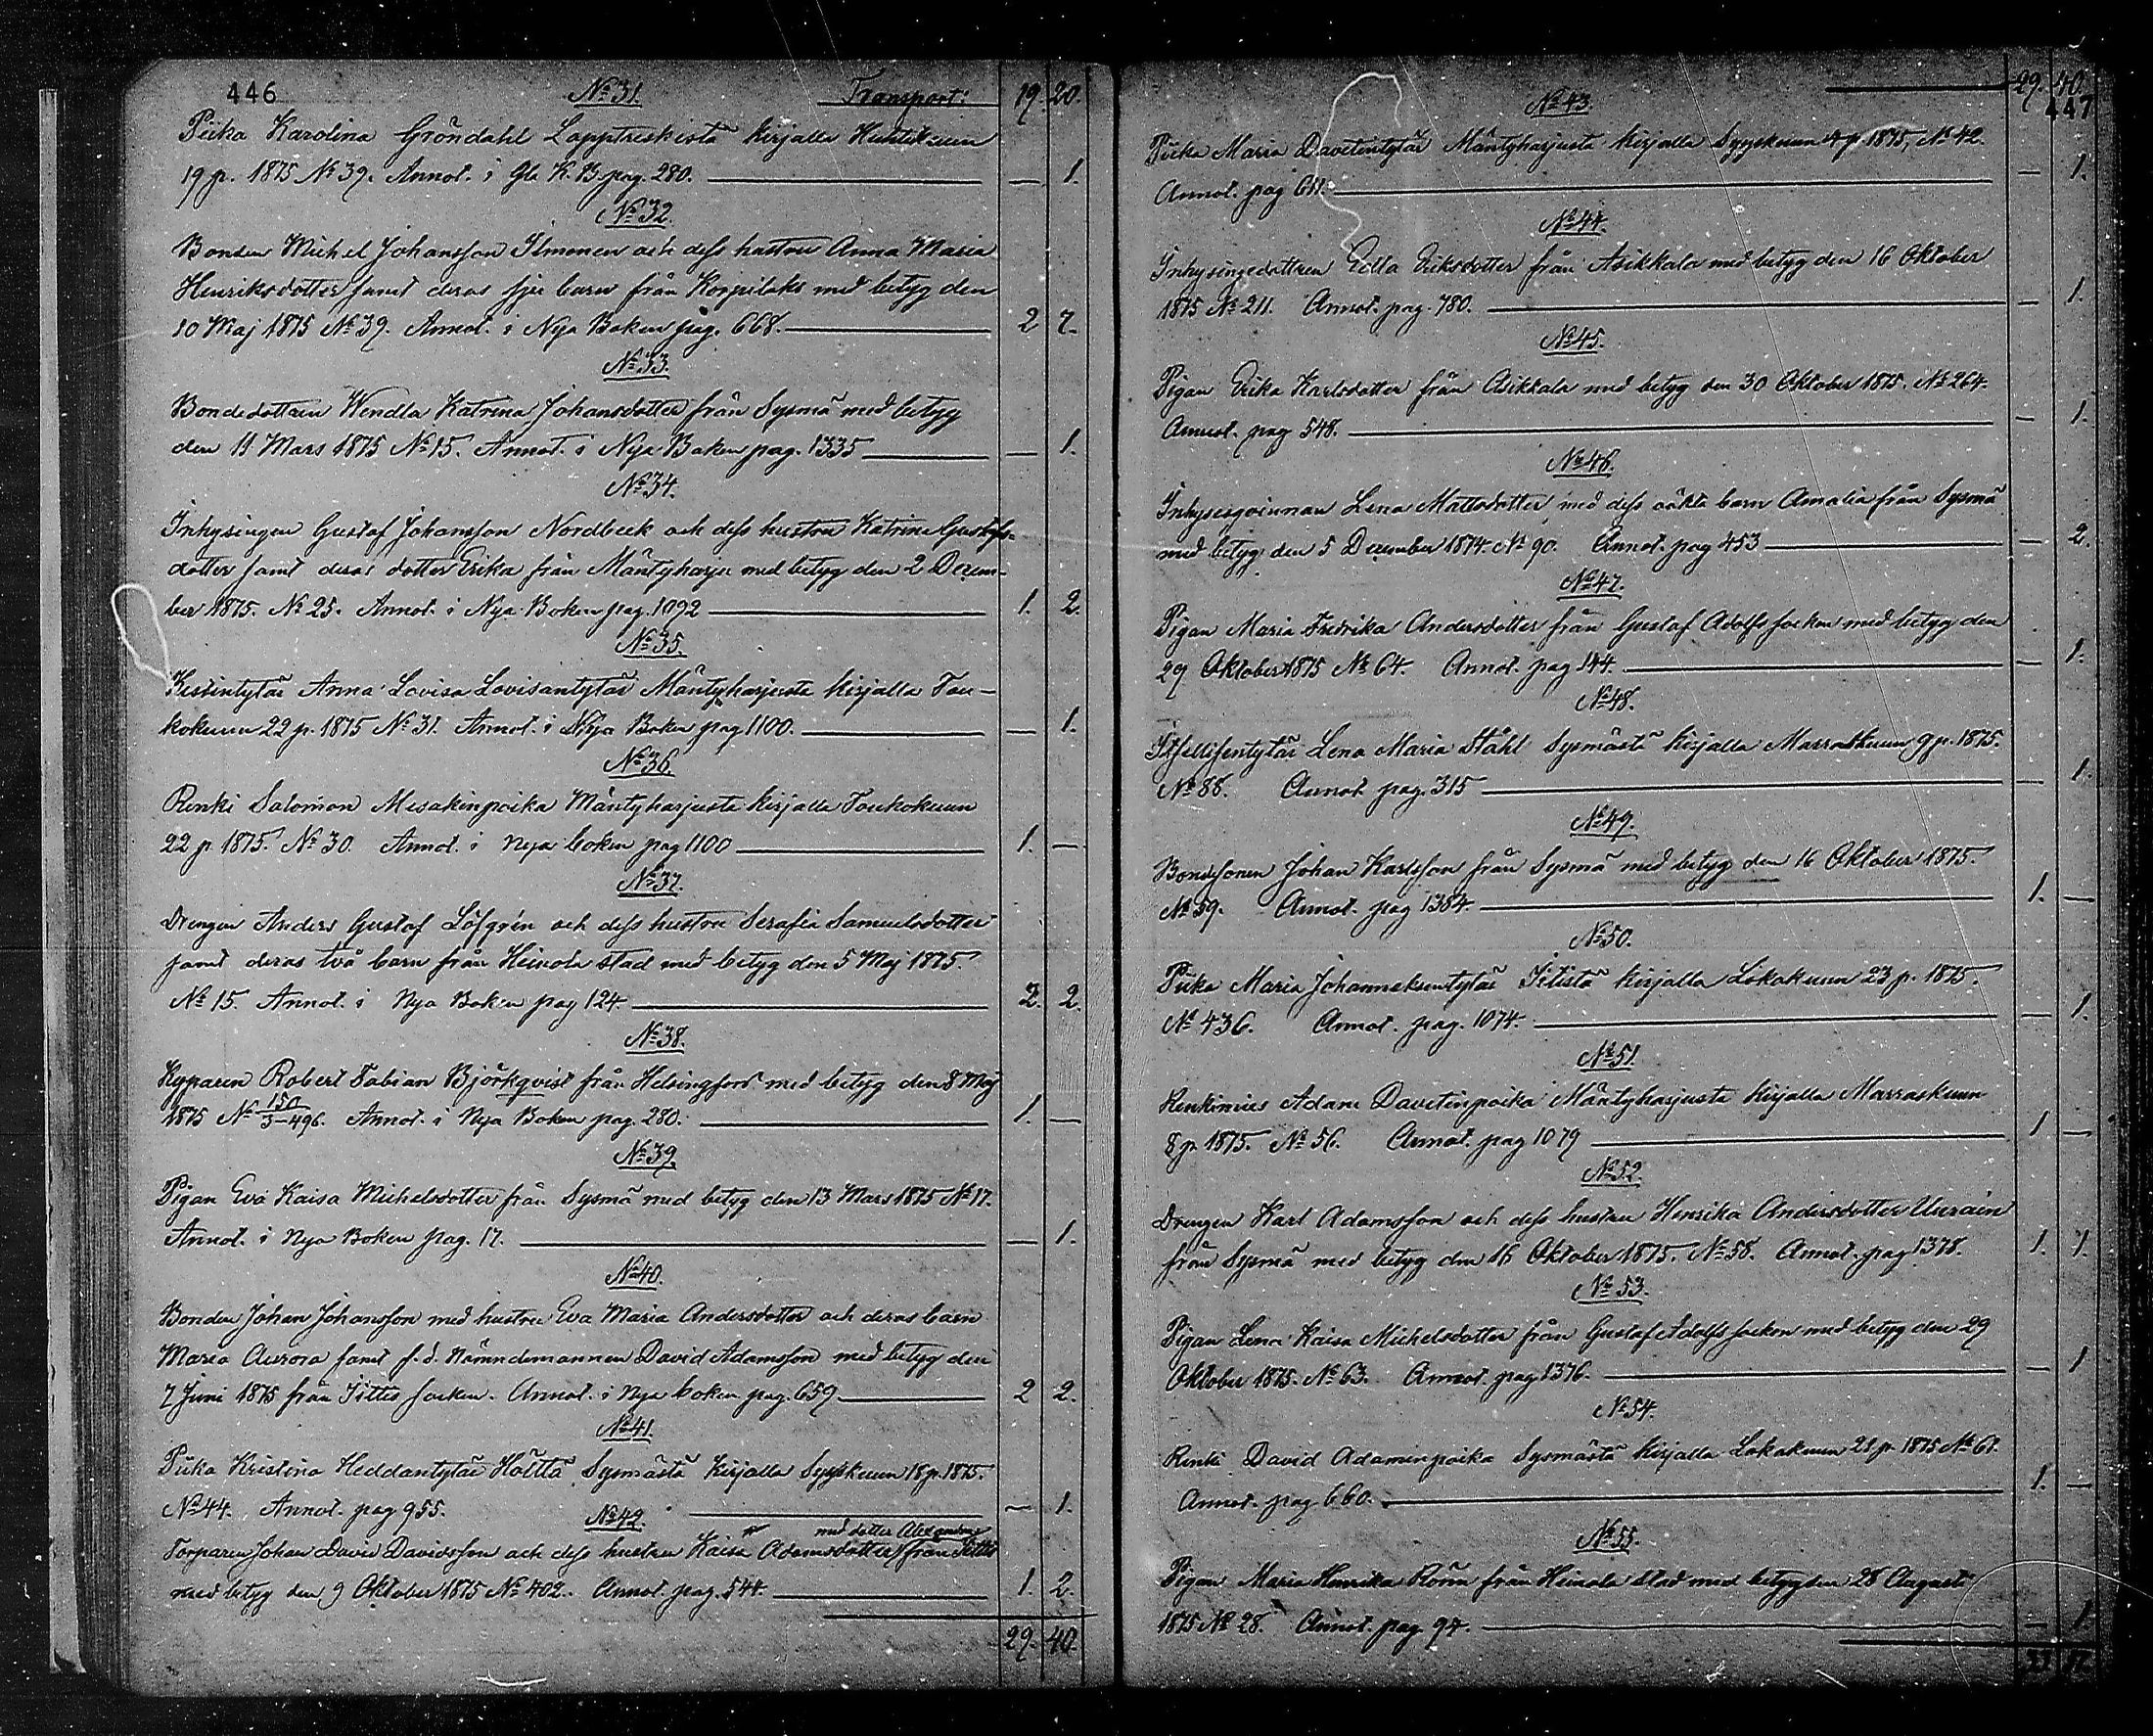 446 No 31. Transport: 19. 20.
Piika Karolina Gröndahl Lapptreskistä kirjalla Huhtikuun
19 p. 1875 No 39. Annot. i Gla K.B. pag. 280. — 1.
No 32.
Bonden Michel Johansson Ilmonen och dess hustru Anna Maria
Henriksdotter samt deras sju barn från Korpilaks med betyg den
10 Maj 1875 No 39. Annot. i Nya Boken pag. 668. 2 7.
No 33.
Bondedottren Wendla Katrina Johansdotter från Sysmä med betyg
den 11 Mars 1875 No 15. Annot. i Nya Boken pag. 1335 — 1.
No 34.
Inhysingen Gustaf Johansson Nordbeck och dess hustru Katrina Gustafs-
dotter samt deras dotter Erika från Mäntyharju med betyg den 2 Decem-
ber 1875. No 25. Annot. i Nya Boken pag. 1092 1. 2.
No 35.
Kestintytär Anna Lovisa Lovisantytär Mäntyharjusta kirjalla Tou-
kokuun 22 p. 1875 No 31. Annot. i Nya Boken pag 1100. — 1.
No 36.
Renki Salomon Misakinpoika Mäntyharjusta kirjalla Toukokuun
22 p. 1875. No 30. Annot. i nya boken pag 1100 1. —
No 37.
Drengen Anders Gustaf Löfgrén och dess hustru Serafia Samuelsdotter
samt deras två barn från Heinola stad med betyg den 5 Maj 1875.
No 15. Annot. i Nya Boken pag 124. 2. 2.
No 38.
Kyparen Robert Fabian Björkqvist från Helsingfors med betyg den 8 Maj
1875 No 150/3-496. Annot. i Nya Boken pag. 280. 1. —
No 39.
Pigan Eva Kaisa Michelsdotter från Sysmä med betyg den 13 Mars 1875 No 17.
Annot. i Nya Boken pag. 17. — 1.
No 40.
Bonden Johan Johansson med hustru Eva Maria Andersdotter och deras barn
Maria Aurora samt f.d. Nämndemannen David Adamsson med betyg den
7 Juni 1875 från Jittis socken. Annot. i nya boken pag. 659 2 2.
No 41.
Piika Kristina Heddantytär Hölttä Sysmästä kirjalla Syyskuun 18 p. 1875.
No 44. Annot. pag 955. — 1.
No 42.
med dotter Alexandra
Torparen Johan David Davidsson och dess hustru Kaisa Adamsdotter från Jittis
med betyg den 9 Oktober 1875 No 402. Annot. pag. 544. 1. 2.
29. 40.
29. 40.
447
No 43.
Piika Maria Davetintytär Mäntyharjusta kirjalla Syyskuun 4 p. 1875, No 42.
Annot. pag 611. — 1.
No 44.
Inhysingedottren Edla Eriksdotter från Asikkala med betyg den 16 Oktober
1875 No 211. Annot. pag. 780. — 1.
No 45.
Pigan Erika Karlsdotter från Asikkala med betyg den 30 Oktober 1875. No 264.
Annot. pag 548. — 1.
No 46.
Inhysesqvinnan Lena Mattsdotter med dess oäkta barn Amalia från Sysmä
med betyg den 5 December 1874. No 90. Annot. pag 453 — 2.
No 47.
Pigan Maria Fredrika Andersdotter från Gustaf Adolfs socken med betyg den
29 Oktober 1875 No 64. Annot. pag 144. — 1.
No 48.
Itsellisentytär Lena Maria Ståhl Sysmästä kirjalla Marraskuun 9 p. 1875.
No 88. Annot pag. 315 — 1.
No 49.
Bondesonen Johan Karlsson från Sysmä med betyg den 16 Oktober 1875.
No 59. Annot. pag 1384. 1. —
No 50.
Piika Maria Johanneksentytär Iitistä kirjalla Lokakuun 23 p. 1875.
No 436. Annot. pag. 1074. — 1.
No 51.
Renkimies Adam Davetinpoika Mäntyharjusta kirjalla Marraskuun
8 p. 1875. No 56. Annot. pag 1079 1 —
No 52.
Drengen Karl Adamsson och dess hustru Henrika Andersdotter
från Sysmä med betyg den 16 Oktober 1875. No 58. Annot. pag 1378. 1. 1.
No 53.
Pigan Lena Kaisa Michelsdotter från Gustaf Adolfs socken med betyg den 29
Oktober 1875. No 63. Annot. pag. 1376. — 1
No 54.
Renki David Adaminpoika Sysmästä kirjalla Lokakuun 28 p. 1875 No 67.
Annot. pag 660. 1. —
No 55.
Pigan Maria Henrika Rörn från Heinola stad med betyg den 28 Augusti
1875 No 28. Annot. pag. 94. — 1.